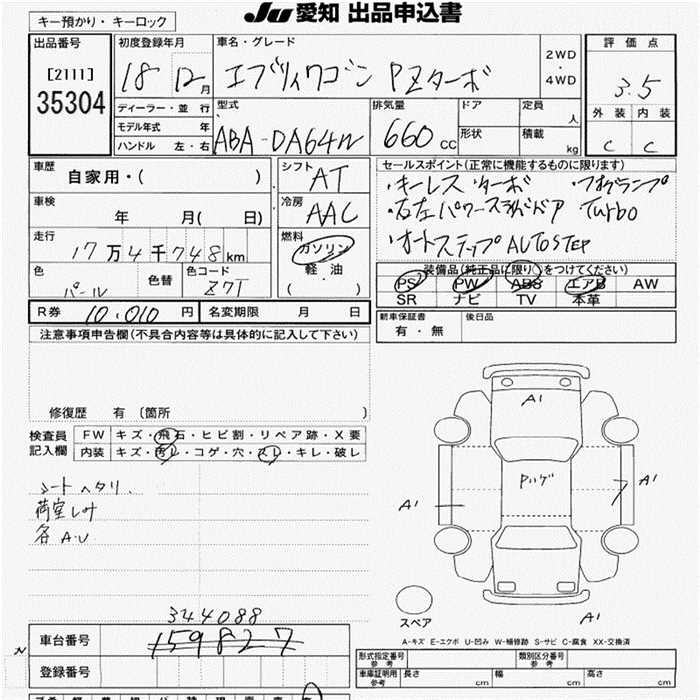 JU 愛知 出品申込書
キー預かり・キーロック
出品番号
[2111]
35304
初度登録年月
18 12月
ディーラー・並 行
モデル年式 年
ハンドル 左・右
車名・グレード
エブリィワゴン PZターボ
2WD
・
4WD
型式
ABA-DA64W
排気量
660 CC
ドア
形状
定員 人
積載 kg
評価点
3.5
外装 内装
C C
車歴
自家用・( )
車検
年 月( 日)
走行
17万4千748km
色
パール
色替
色コード
Z7T
シフト
AT
冷房
AAC
燃料
ガソリン
軽・油
( ・ )
セールスポイント(正常に機能するものに限ります)
・キーレス ターボ ・フォグランプ
・右左パワースライドドア Turbo
・オートステップ AUTOSTEP
装備品(純正品に限り○をつけてください)
PS PW ABS エアB AW
SR ナビ TV 本革
R券 10,010 円
名変期限 月 日
新車保証書
有・無
後日品
注意事項申告欄(不具合内容等は具体的に記入して下さい)
修復歴 有 〔箇所 〕
検査員
記入欄
FW キズ・飛石・ヒビ割・リペア跡・X要
内装 キズ・汚レ・コゲ・穴・スレ・キレ・破レ
シートヘタリ.
荷室しみ
各A.U
A1
Pハゲ
A1
A1
A1
スペア
A-キズ E-エクボ U-凹み W-補修跡 S-サビ C-腐食 XX-交換済
344088
車台番号 159827
登録番号
型式指定番号
参考
類別区分番号
参考
車庫証明用
参考
長さ cm 幅 cm 高さ cm